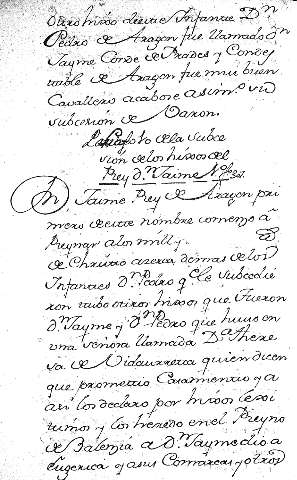 Otro hixos deeste Infante Dn
Pedro de Aragon fue llamado dn
Jayme Conde de Prades y Condes
table de Aragon fue mui buen
Cavallero acabose asimº sin
subcesion de Baron.
de la subce
sion de los hixos del
Rey dn Jaime Nº
Dn Jaime Rey de Aragon pri
mero de este nombre comenzo á
Reynar a los mill y
de Christo aera demas de los
Infantes dn Pedro q le subcedie
ron tubo otros hixos que fueron
dn Jayme y dn Pedro que huuo en
una señora llamada Da There
sa de Vidaurreta quien dicen
que prometio Casamiento y a
asi los declaro por hixos lexi
timos y los heredo en el Reyno
de Balenzia a dn Jayme dio a
Exgerica y a sus Comarcas y otros